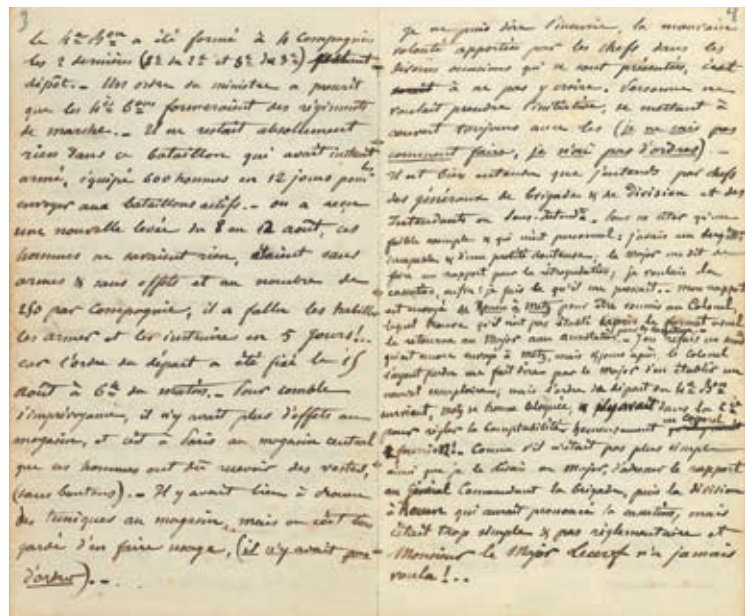 3
Le 4me Bon a été formé à 4 Compagnies
les 2 dernières (8e du 2e et 8e du 3e)
dépôt. — Un ordre du ministre a prescrit
que les 4es Bons formeraient des régiments
de marche. — Il ne restait absolument
rien dans ce bataillon qui avait instruit
armé, équipé 600 hommes en 12 jours pour les
envoyer aux bataillons actifs. — on a reçu
une nouvelle levée du 8 au 12 août, ces
hommes ne savaient rien, étaient sans
armes & sans effets et au nombre de
250 par Compagnie, il a fallu les habiller
les armer et les instruire en 5 jours!..
car l'ordre du départ a été fixé le 15
août à 6h du matin. — Pour comble
d'imprévoyance, il n'y avait plus d'effets au
magasin, et c'est à Paris au magasin central
que ces hommes ont dû recevoir des vestes,
(sans boutons). — Il y avait bien à
des tuniques au magasin, mais on s'est bien
gardé d'en faire usage, (il n'y avait pas
d'ordres). —
4
Je ne puis dire l'incurie, la mauvaise
volonté apportées par les chefs dans les
diverses occasions qui se sont présentées, c'est
à ne pas y croire. Personne ne
voulait prendre l'initiative, se mettant à
couvert toujours avec les (je ne sais pas
comment faire, je n'ai pas d'ordres) —
Il est bien entendu que j'entends par chefs
des généraux de brigade & de division et des
Intendants ou Sous-Intend. Pour ne citer qu'un
faible exemple & qui m'est personnel: j'avais un sergent
incapable & d'une probité douteuse, le major me dit de
faire un rapport pour la rétrogradation, je voulais la
cassation, enfin! je fis ce qu'il me prescrit.. mon rapport
est envoyé de à Metz pour être soumis au Colonel
lequel trouve qu'il n'est pas établi le format voulu
le retourne au Major avec annotation — J'en refais un autre
qu'est encore envoyé à Metz, mais 8 jours après, le Colonel
l'ayant perdu me fait dire par le Major d'en établir un
nouvel exemplaire; mais l'ordre du départ du 4me Bon
survient, Metz se trouve bloquée, & dans la Cie
pour régler la Comptabilité heureusement un Caporal
fourrier!. Comme s'il n'était pas plus simple
ainsi que je le disais au Major, d'adresser le rapport
au Général Commandant la brigade, puis la division
à qui aurait prononcé la cassation, mais
c'était trop simple & pas règlementaire et
Monsieur le Major Lecerf n'a jamais
voulu!..